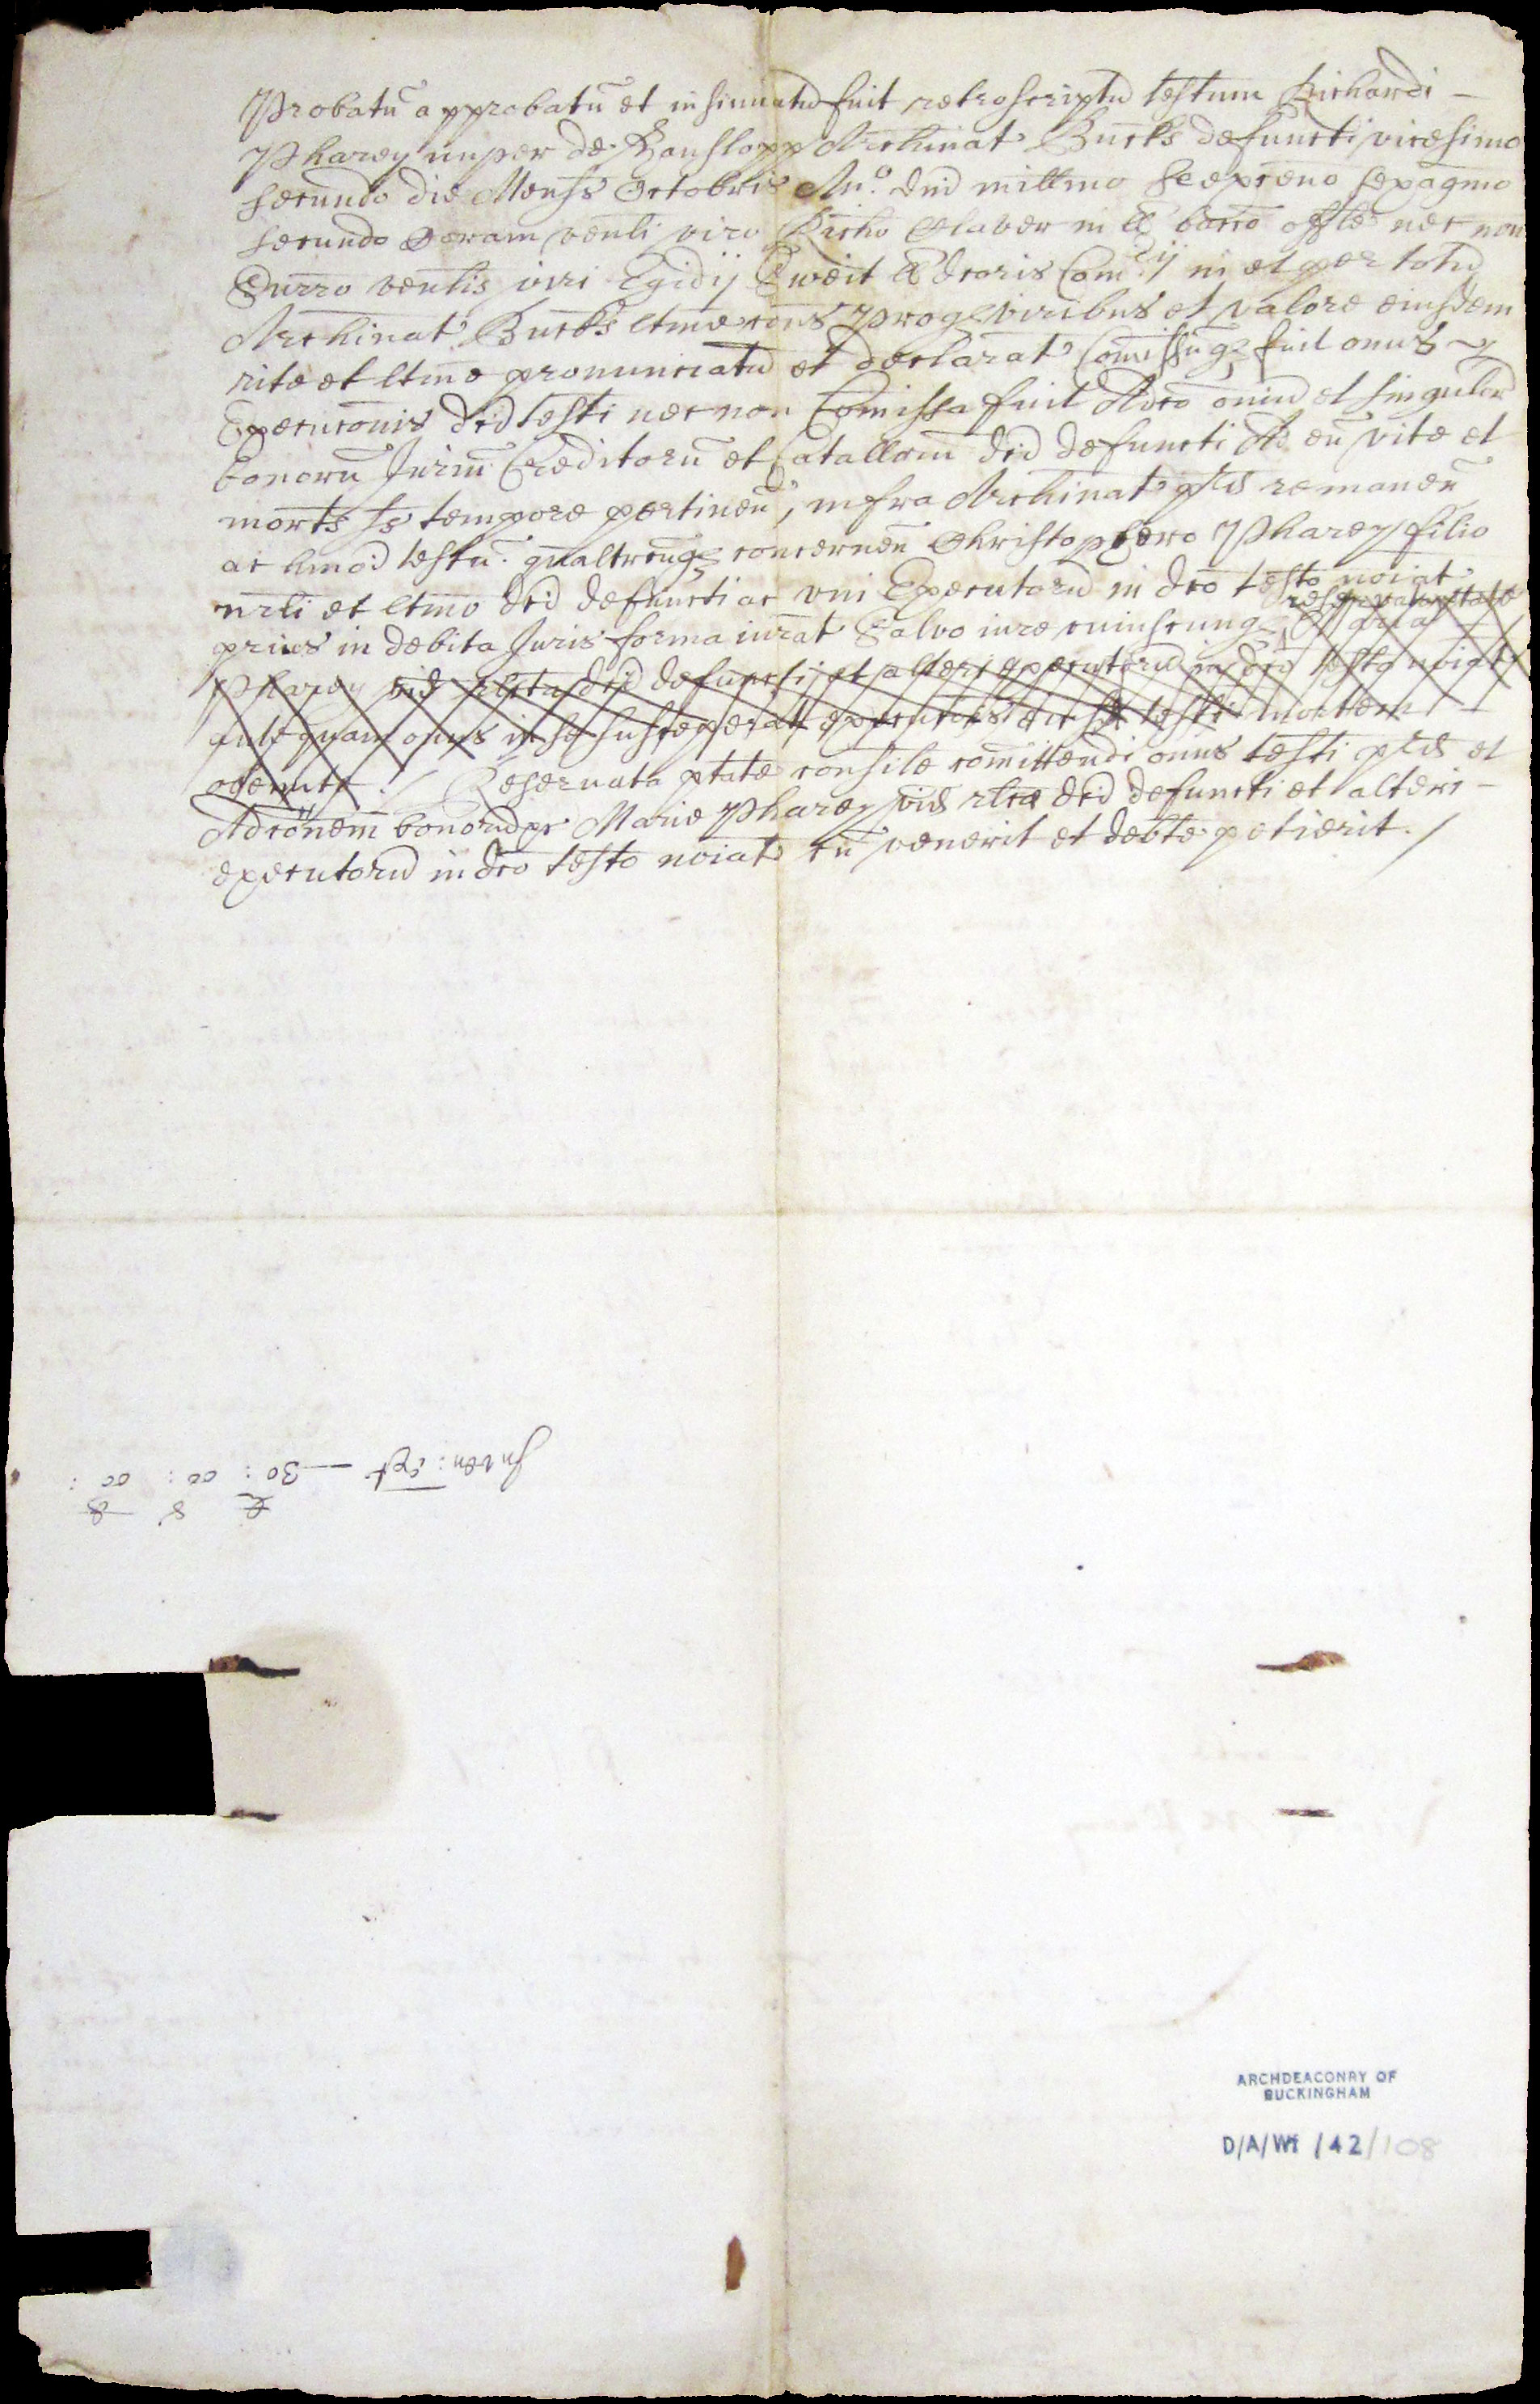 Probatū approbatū et insinuatū fuit retroscriptū testum Richardi -
Pharey nuper de Hanslopp Archinat Bucks defuncti vicesimo
secundo die Mensis Octobris An.o dnī millmo sexagmo
secundo Coram venli viro Richo in bacc° offle nec non
Surro venlis viri Egidij Sweit doris Com in et per totū
Archinat Bucks ltime cons Proqe viribus et valore eiusdem
rite et ltme pronunciatū et declarat Comissūqe fuit onus
Execuconis dcī testi nec non Comissa fuit Adco oniū et singulorū
bonorū Juriū Creditorū et Catallorū dcī defuncti Ad eū vite et
mortis suę tempore pertineñ, infra Archinat pred remaneñ
ac hmōi testū. qualtrcūqe concerneñ Christophero Pharey filio
nrli et ltmo dcī defuncti ac vni Executorū in dco testo noiat
prius in debita Juris forma iurat Salvo iure cuiuscunqe Maria
reservata ptate
Pharey vid relcta dcī defuncti et alteri executorū in dco testo noiat
antequam onus in se susceperat executoris testi mortem
obeunte ./ Reservata ptate consile comittendi onus testi pred et
Adcōnem bonorū pr Marie Pharey vid rlce dcī defuncti et alteri -
executorū in dco testo noiat cū venerit et debte petierit ./
Inven: Ext — 30 : 00 : 00 :
ARCHDEACONRY OF
BUCKINGHAM
D/A/Wf /42/108